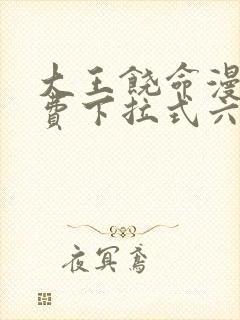 大王饶命漫
费下拉式六
夜冥鸢